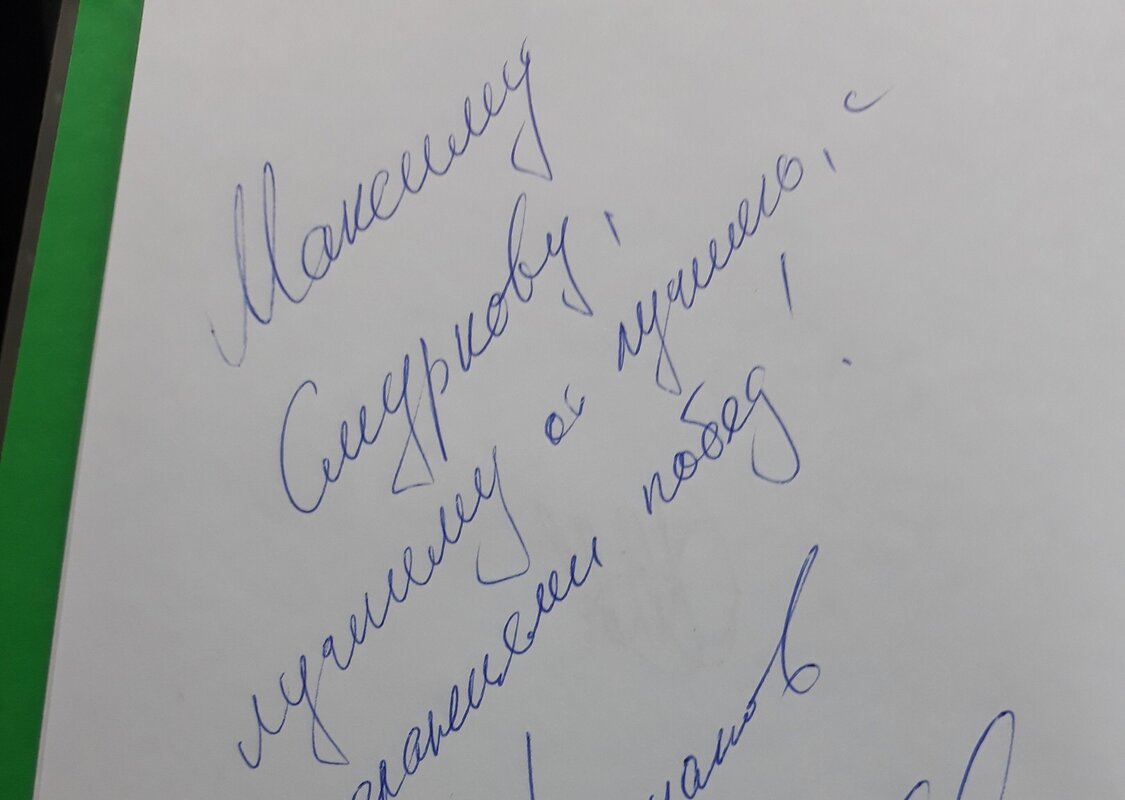 Максиму
Смуркову,
лучшему от лучшего, с
пожеланием побед!